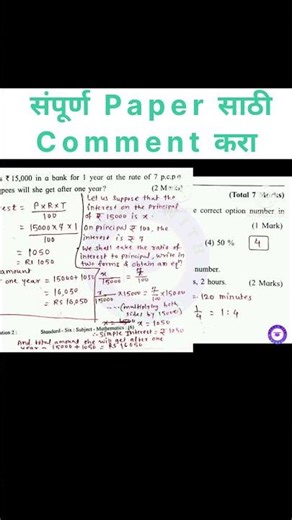 संपूर्ण Paper साठी
Comment करा
₹ 15,000 in a bank for 1 year at the rate of 7 p.c.p.a
rupees will she get after one year? (2 Marks)
est = P×R×T
100
= 15000×7×1
100
= 1050
= Rs 1050
amount
one year = 15000+1050
= 16,050
= Rs 16,050
Let us suppose that the
interest on the principal
of ₹ 15000 is x.
On principal ₹ 100, the
interest is ₹ 7
We shall take the ratio of
interest to principal, write in
two forms & obtain an eqn
x/15000 = 7/100
x/15000 ×15000 = 7/100 ×15000
(multiplying both
sides by 15000)
x = 1050
∴ Simple Interest = ₹ 1050
And total amount she will get after one
year = 15000+1050 = Rs 16050
Standard - Six : Subject - Mathematics : (6)
(Total 7 Marks)
e correct option number in
(1 Mark)
(4) 50 % 4
number.
s, 2 hours. (2 Marks)
= 120 minutes
1/4 = 1:4